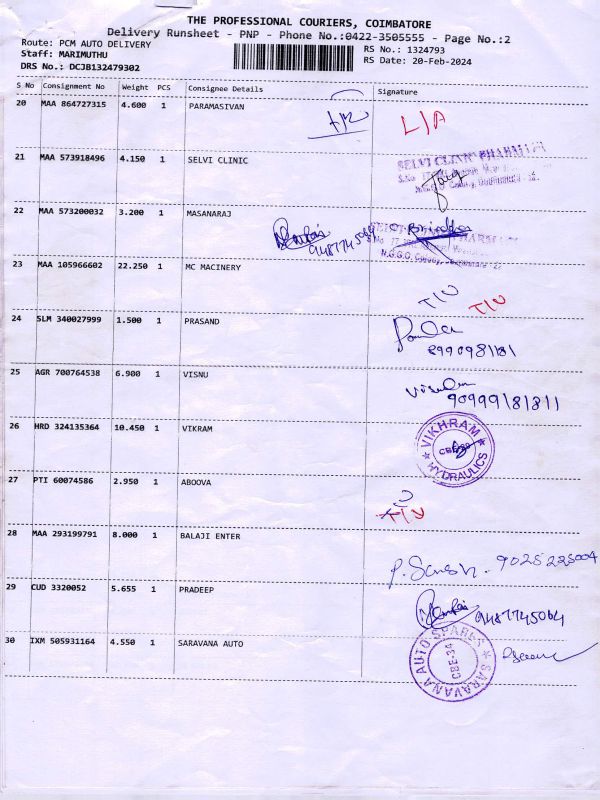 THE PROFESSIONAL COURIERS, COIMBATORE
Delivery Runsheet - PNP - Phone No.:0422-3505555 - Page No.:2
Route: PCM AUTO DELIVERY
RS No.: 1324793
Staff: MARIMUTHU
RS Date: 20-Feb-2024
DRS No.: DCJB132479302
S No Consignment No Weight PCS Consignee Details Signature
20 MAA 864727315 4.600 1 PARAMASIVAN
L/A
21 MAA 573918496 4.150 1 SELVI CLINIC
SELVI CLINIC PHARM
22 MAA 573200032 3.200 1 MASANARAJ
9487745064
N.G.G.O. Colony,
23 MAA 105966602 22.250 1 MC MACINERY
T/U T/U
24 SLM 340027999 1.500 1 PRASAND
8990981181
25 AGR 700764538 6.900 1 VISNU
9099918181
26 HRD 324135364 10.450 1 VIKRAM
VIKHRAM HYDRAULICS
27 PTI 60074586 2.950 1 ABOOVA
T/U
28 MAA 293199791 8.000 1 BALAJI ENTER
9025225004
29 CUD 3320052 5.655 1 PRADEEP
9487745064
30 IXM 505931164 4.550 1 SARAVANA AUTO
SARAVANA AUTO SPARES
CBE-34